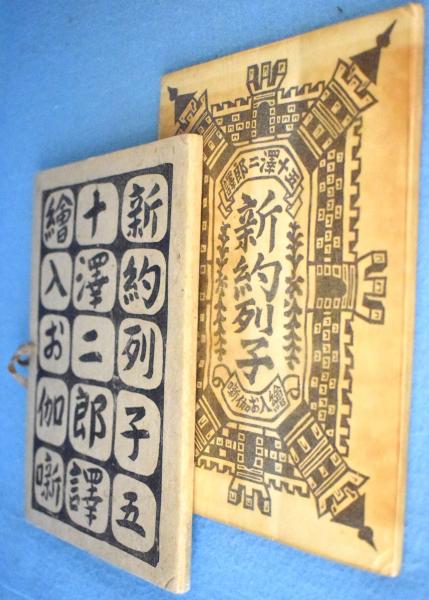 新約列子五
十澤二郎譯
繪入お伽噺
五十澤二郎譯
新約列子
繪入お伽噺